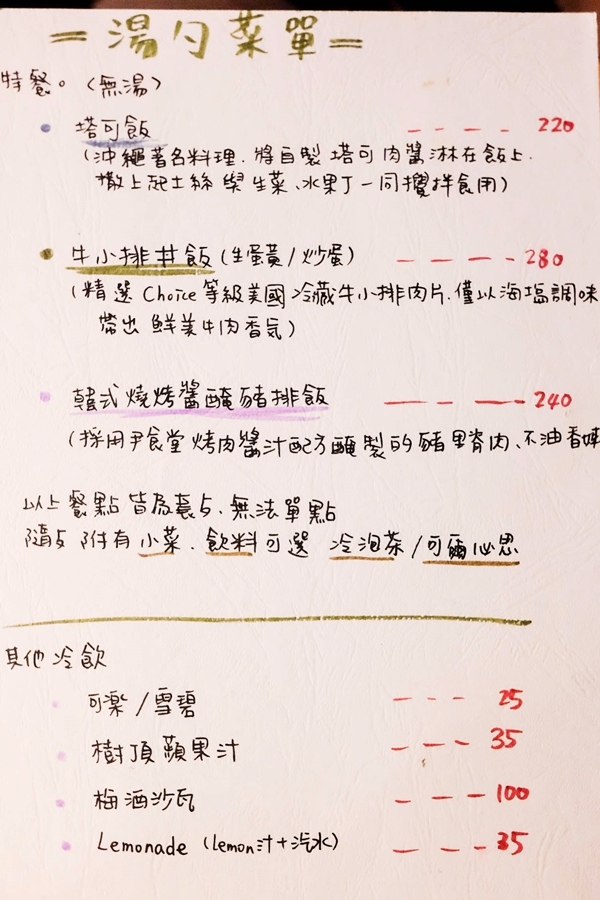 =湯勺菜單=
特餐。(無湯)
塔可飯 — — — — 220
(沖繩著名料理.將自製塔可肉醬淋在飯上.
撒上起士絲與生菜、水果丁一同攪拌食用)
牛小排丼飯(生蛋黃/炒蛋) — — — — 280
(精選Choice等級美國冷藏牛小排肉片.僅以海塩調味
帶出鮮美牛肉香氣)
韓式燒烤醬醃豬排飯 — — — — 240
(採用尹食堂烤肉醬汁配方醃製的豬里脊肉、不油香嫩
以上餐點皆為套餐、無法單點
隨餐附有小菜.飲料可選 冷泡茶/可爾必思
其他冷飲
可樂/雪碧 — — — 25
樹頂蘋果汁 — — — 35
梅酒沙瓦 — — — 100
Lemonade (Lemon汁+汽水) — — — 35